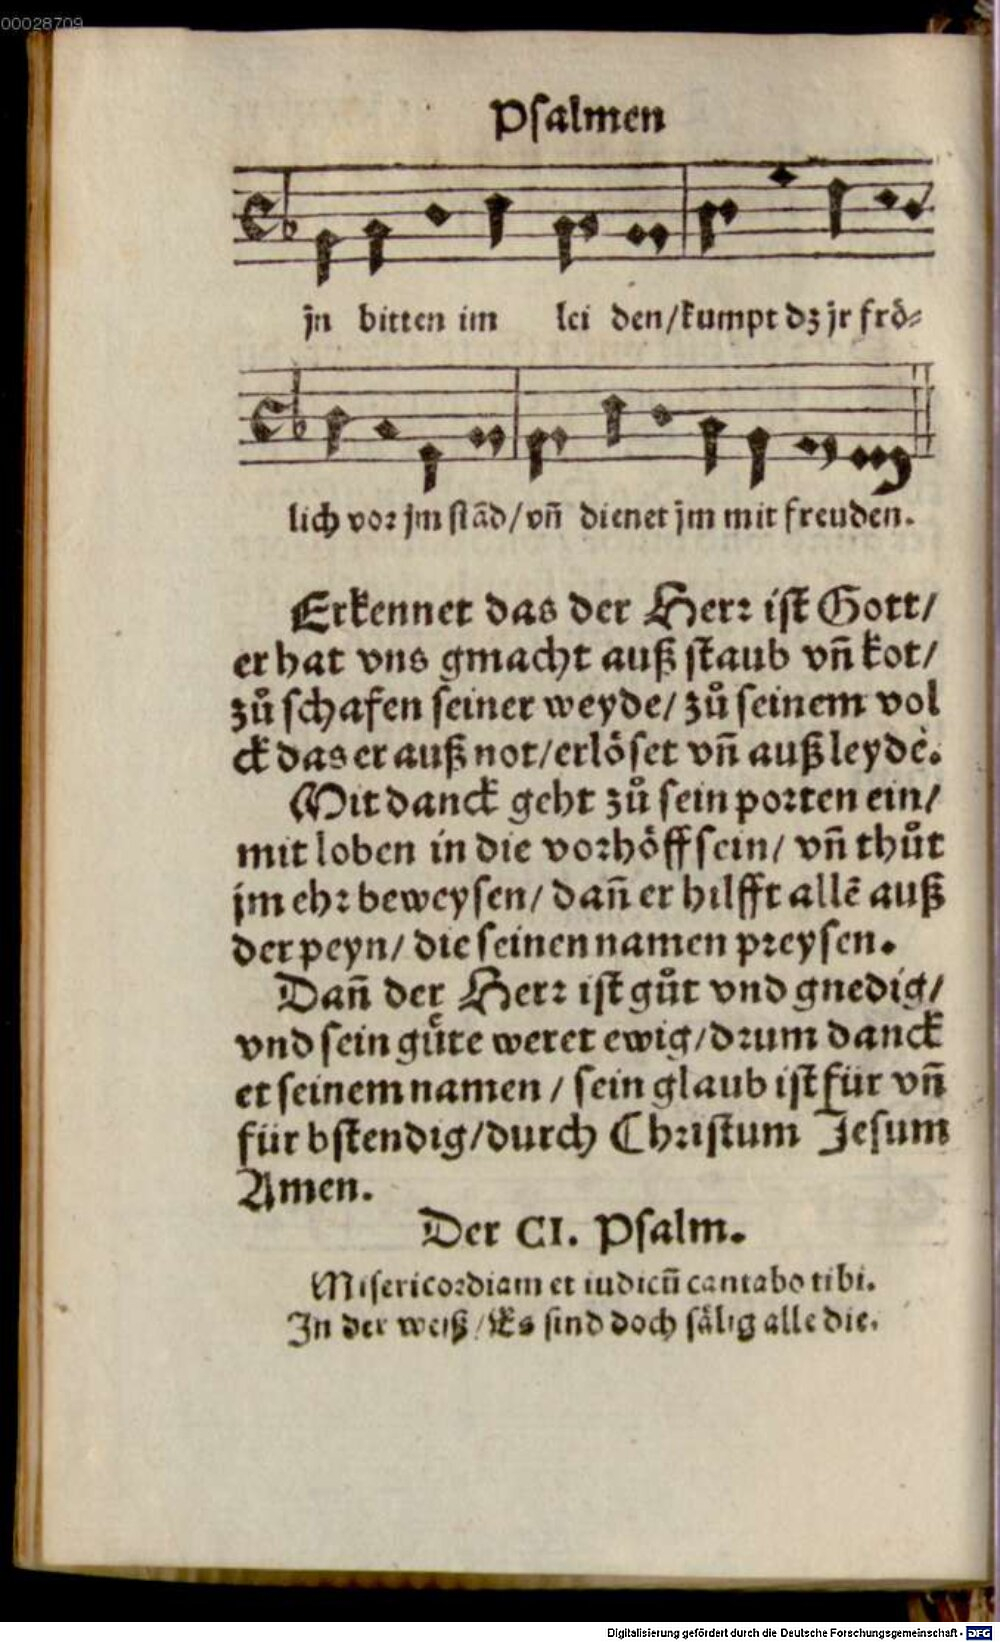 00028709
Psalmen
jn bitten im lei den/kumpt dz jr frö⸗
lich vor jm stād/vn̄ dienet jm mit freuden.
Erkennet das der Herr ist Gott/
er hat vns gmacht auß staub vn̄ kot/
zů schafen seiner weyde/ zů seinem vol
ck das er auß not/erlöset vn̄ auß leydē.
Mit danck geht zů sein porten ein/
mit loben in die vorhöff sein/ vn̄ thůt
jm ehr beweysen/ dañ er hilfft allē auß
der peyn/ die seinen namen preysen.
Dañ der Herr ist gůt vnd gnedig/
vnd sein gůte weret ewig/drum danck
et seinem namen / sein glaub ist für vn̄
für bstendig/durch Christum Jesum
Amen.
Der CI. Psalm.
Misericordiam et iudiciū cantabo tibi.
In der weiß/Es sind doch sälig alle die.
Digitalisierung gefördert durch die Deutsche Forschungsgemeinschaft - DFG